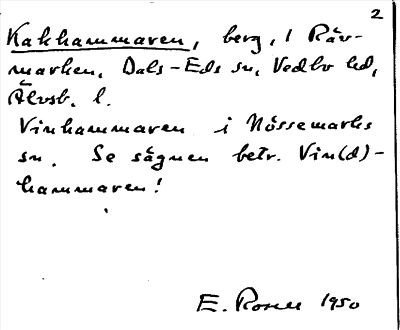 2
Kakhammaren, berg, i Räv-
marken, Dals-Eds sn, Vedbo hd,
Älvsb. l.
Vinhammaren i Nössemarks
sn. Se sägnen betr. Vin(d)-
hammaren!
E. Rosell 1950